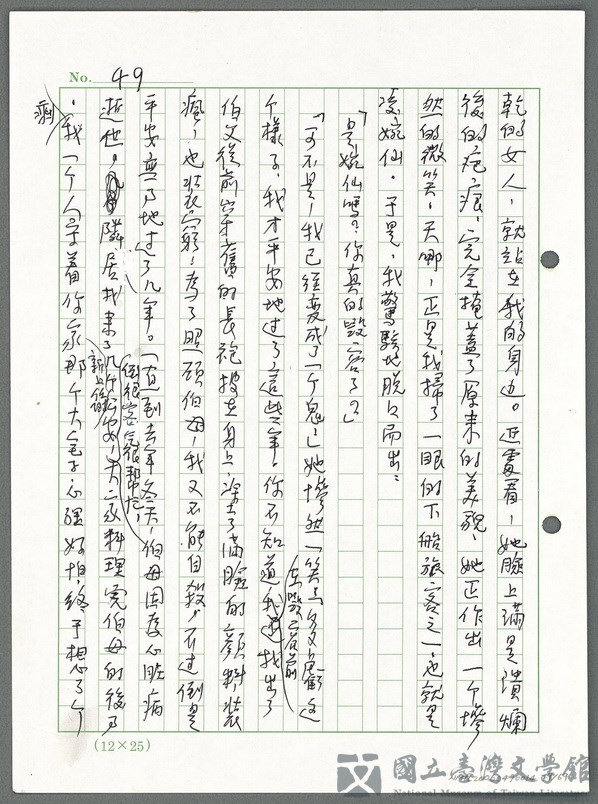 No. 49
乾的女人，就站在我的身边。近處看，她臉上滿是潰爛
後的疤痕，完全掩蓋了原來的美貌，她正作出一个慘
然的微笑，天啊，正是我掃了一眼的下船旅客之一，也就是
凌婉仙。于是，我驚駭地脱口而出：
「是婉仙嗎？你真的毀容了？」
「可不是，我已經变成了一个鬼，」她慘然一笑：「多虧這
个樣子，我才平安地過了這些年。你不知道我找出了
在以前
伯父從前留下舊的長袍披在身上，塗上了滿臉的顏料裝
瘋，也裝窮，為了照顧伯母，我又不能自殺，不过倒是
平安無事地过了几年。一直到去年冬天，伯母因為心臟病
倒很客氣很幫忙，
逝世，隣居找来了几个，大家料理完伯母的後事
新上任的
，我一个人守着你家那个大宅子心裡好怕，終于想了个
剩
(12×25)
國立臺灣文学館
National Museum of Taiwan Literature